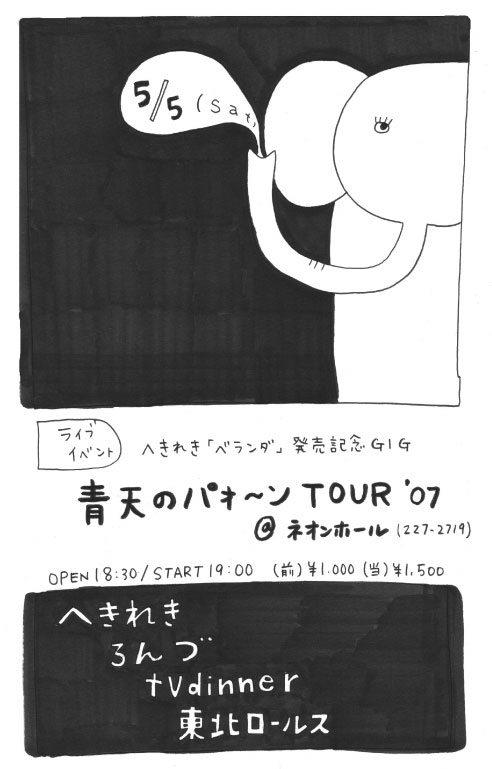 5/5 (Sat)
ライブ
イベント
へきれき「ベランダ」発売記念GIG
青天のパォ〜ン TOUR '07
@ ネオンホール (227-2719)
OPEN 18:30/START 19:00 (前)¥1.000 (当)¥1,500
へきれき
ろんづ
tvdinner
東北ロールス